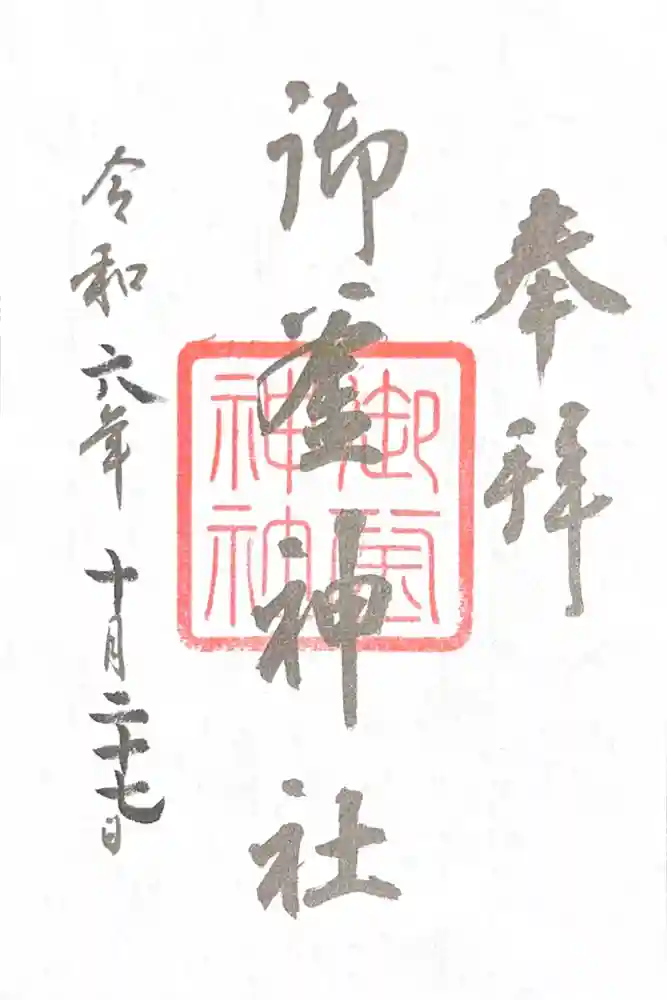 奉拝
御釜神社
御釜神社
令和六年十月二十七日